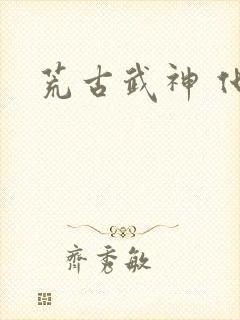 荒古武神
齊秀敏